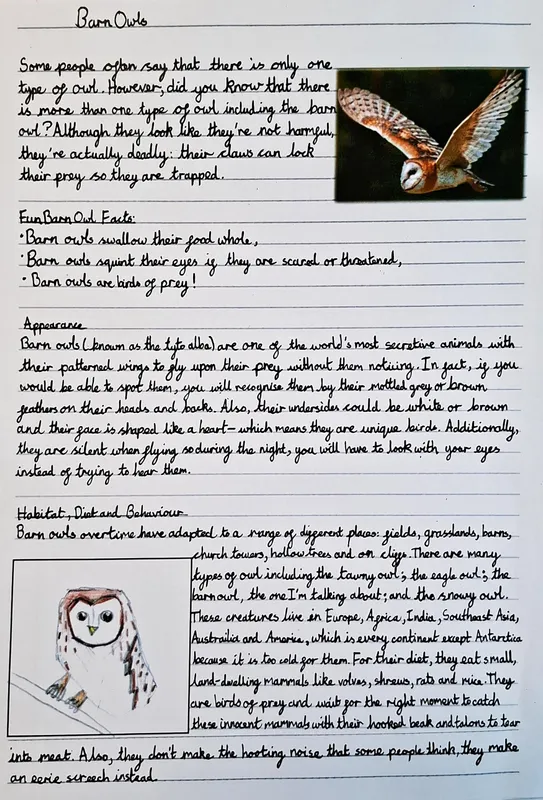 Barn Owls
Some people often say that there is only one
type of owl. However, did you know that there
is more than one type of owl including the barn
owl? Although they look like they're not harmful,
they're actually deadly: their claws can lock
their prey so they are trapped.
Fun Barn Owl Facts:
• Barn owls swallow their food whole,
• Barn owls squint their eyes if they are scared or threatened,
• Barn owls are birds of prey!
Appearance
Barn owls (known as the tyto alba) are one of the world's most secretive animals with
their patterned wings to fly upon their prey without them noticing. In fact, if you
would be able to spot them, you will recognise them by their mottled grey or brown
feathers on their heads and backs. Also, their undersides could be white or brown
and their face is shaped like a heart – which means they are unique birds. Additionally,
they are silent when flying so during the night, you will have to look with your eyes
instead of trying to hear them.
Habitat, Diet and Behaviour
Barn owls overtime have adapted to a range of different places: fields, grasslands, barns,
church towers, hollow trees and on cliffs. There are many
types of owl including the tawny owl; the eagle owl; the
barn owl, the one I'm talking about; and the snowy owl.
These creatures live in Europe, Africa, India, Southeast Asia,
Austrailia and America, which is every continent except Antartica
because it is too cold for them. For their diet, they eat small,
land-dwelling mammals like voles, shrews, rats and mice. They
are birds of prey and wait for the right moment to catch
these innocent mammals with their hooked beak and talons to tear
into meat. Also, they don't make the hooting noise that some people think, they make
an eerie screech instead.